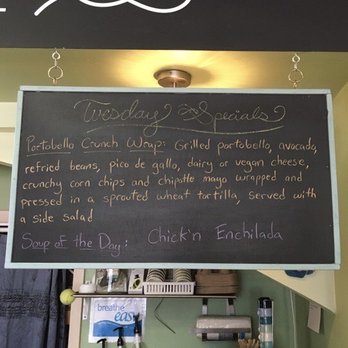 Tuesday Specials
Portobello Crunch Wrap: Grilled portobello, avocado,
refried beans, pico de gallo, dairy or vegan cheese,
crunchy corn chips and chipotle mayo wrapped and
pressed in a sprouted wheat tortilla, served with
a side salad
Soup of the Day: Chick'n Enchilada
breathe
easy